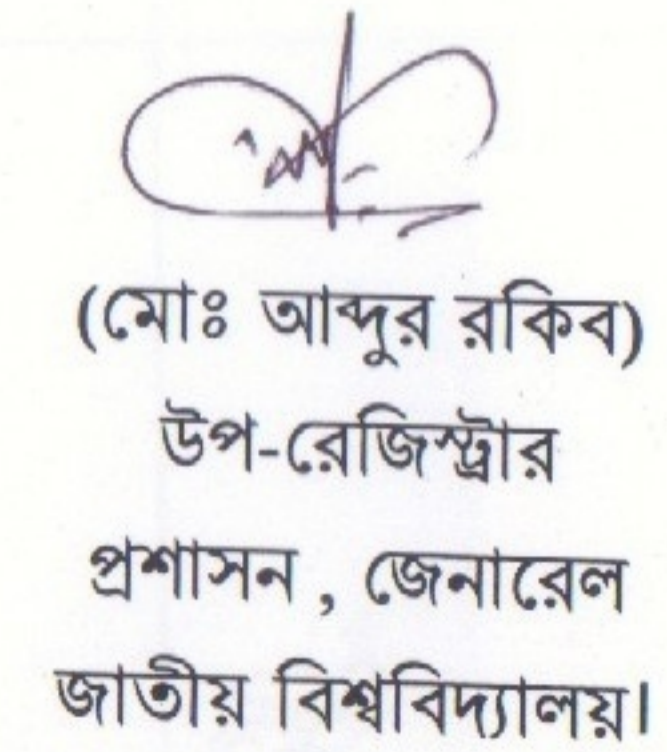 (মোঃ আব্দুর রকিব)
উপ-রেজিস্ট্রার
প্রশাসন , জেনারেল
জাতীয় বিশ্ববিদ্যালয়।